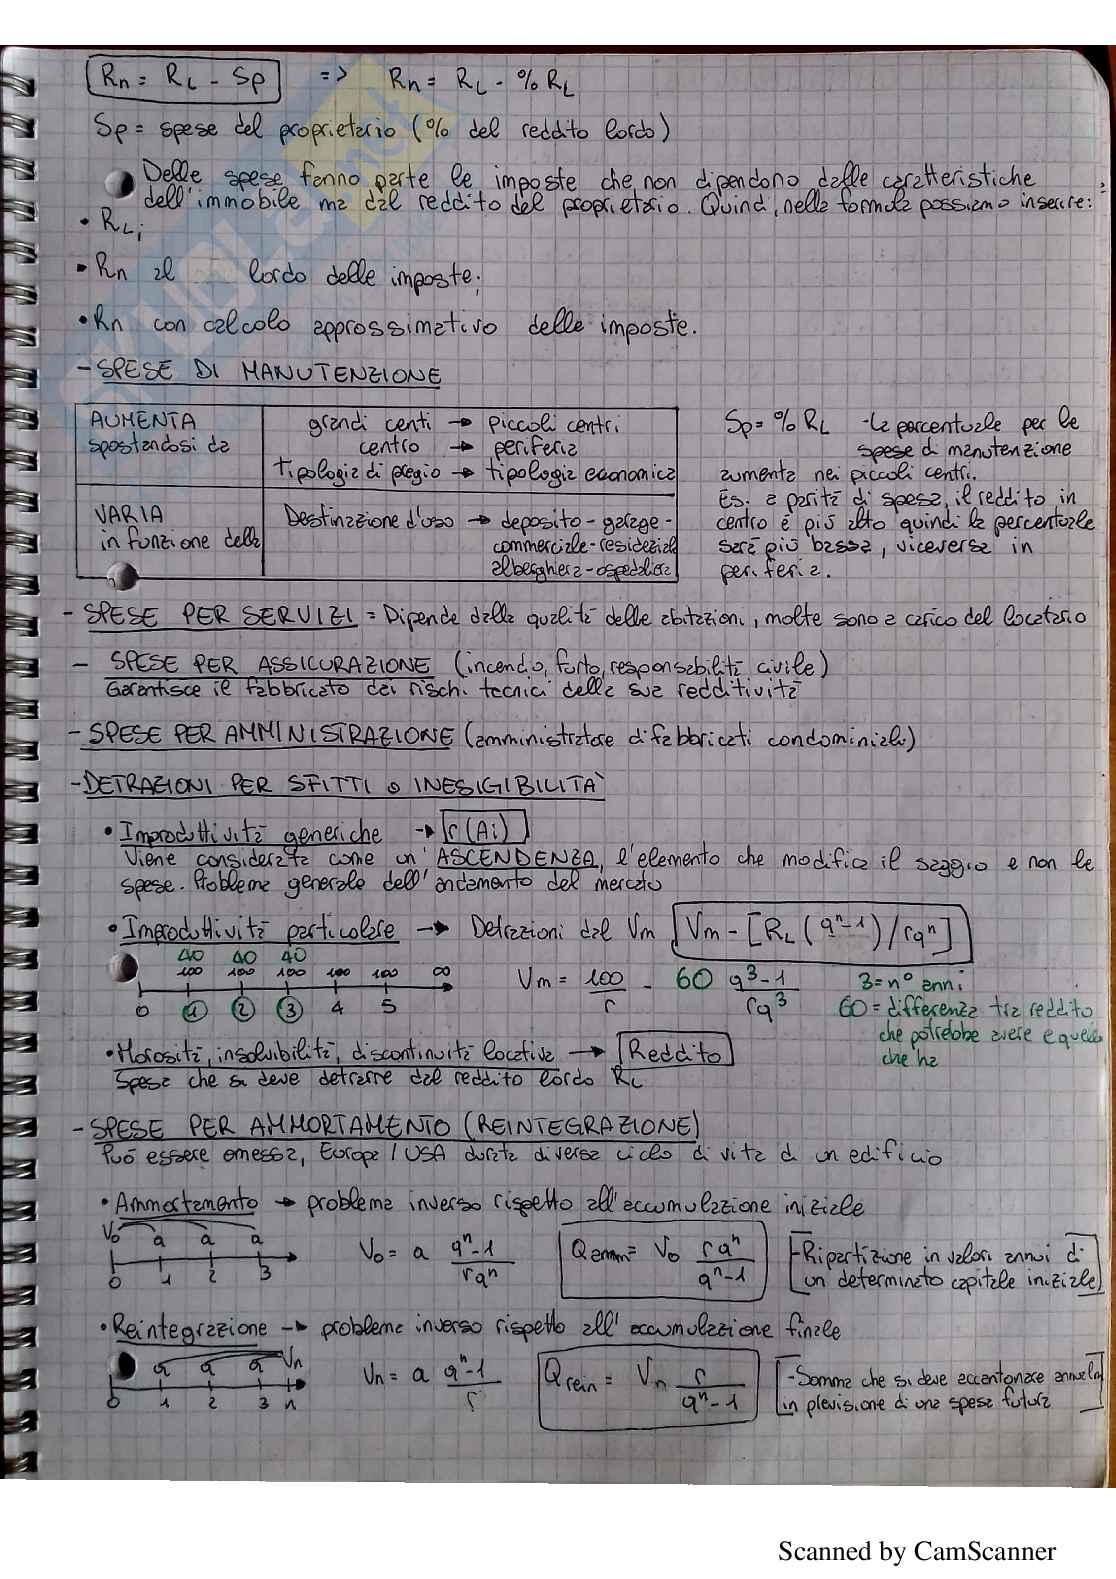 Rn = RL - Sp => Rn = RL - % RL
Sp = spese del proprietario (% del reddito lordo)
Delle spese fanno parte le imposte che non dipendono dalle caratteristiche
dell'immobile ma dal reddito del proprietario. Quindi, nella formula possiamo inserire:
• RL;
• Rn al lordo delle imposte;
• Rn con calcolo approssimativo delle imposte.
- SPESE DI MANUTENZIONE
AUMENTA spostandosi da
grandi centi → piccoli centri
centro → periferia
tipologia di pregio → tipologia economica
VARIA in funzione della
Destinazione d'uso → deposito - garage -
commerciale - resideziale
alberghiera - ospedaliera
Sp = % RL - La percentuale per le
spese di manutenzione
aumenta nei piccoli centri.
Es. a parità di spesa, il reddito in
centro è più alto quindi la percentuale
sarà più bassa, viceversa in
periferia.
- SPESE PER SERVIZI = Dipende dalla qualità delle abitazioni, molte sono a carico del locatario
- SPESE PER ASSICURAZIONE (incendio, furto, responsabilità civile)
Garantisce il fabbricato dai rischi tecnici della sua redditività
- SPESE PER AMMINISTRAZIONE (amministratore di fabbricati condominiali)
- DETRAZIONI PER SFITTI o INESIGIBILITÀ
• Improduttività generiche → r(Ai)
Viene considerata come un'ASCENDENZA, l'elemento che modifica il saggio e non le
spese. Problema generale dell'andamento del mercato
• Improduttività particolare → Detrazioni dal Vm Vm - [RL (q^n-1)/rq^n]
40 40 40
100 100 100 100 100 ∞
0 1 2 3 4 5
Vm = 100/r - 60 (q^3-1)/(rq^3)
3 = n° anni
60 = differenza tra reddito
che potrebbe avere e quello
che ha
• Morosità, insolvibilità, discontinuità locativa → Reddito
Spesa che si deve detrarre dal reddito lordo RL
- SPESE PER AMMORTAMENTO (REINTEGRAZIONE)
Può essere omessa, Europa / USA durata diversa ciclo di vita di un edificio
• Ammortamento → problema inverso rispetto all'accumulazione iniziale
V0 a a a
0 1 2 3
V0 = a (q^n-1)/(rq^n)
Qamm = V0 (rq^n)/(q^n-1)
- Ripartizione in valori annui di
un determinato capitale iniziale
• Reintegrazione → problema inverso rispetto all'accumulazione finale
a a a Vn
0 1 2 3 n
Vn = a (q^n-1)/r
Qrein = Vn r/(q^n-1)
- Somma che si deve accantonare
in previsione di una spesa futura
Scanned by CamScanner